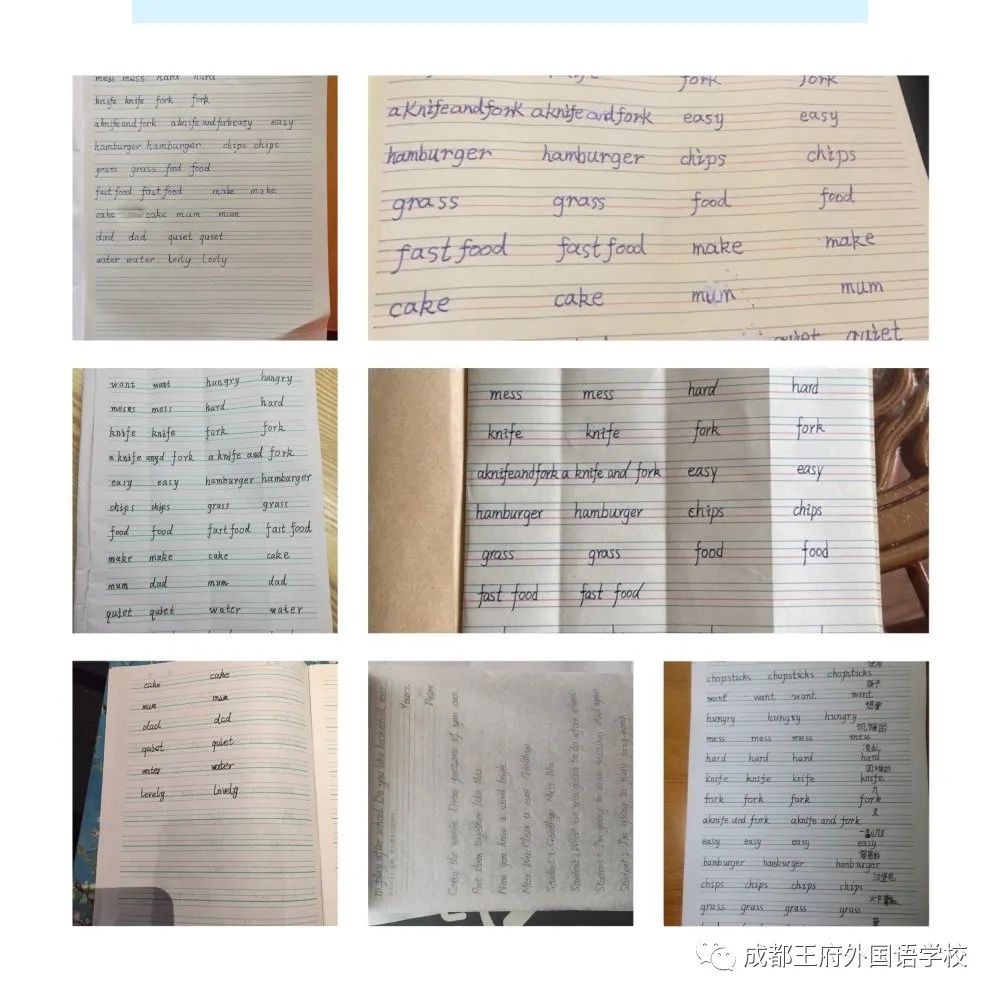 mess mess hard hard
knife knife fork fork
aknifeandfork aknife andfork easy easy
hamburger hamburger chips chips
grass grass food food
fast food fast food make make
cake cake mum mum
dad dad quiet quiet
water water Lovly Lovly
fork fork
aknifeandfork aknifeandfork easy easy
hamburger hamburger chips chips
grass grass food food
fast food fast food make make
cake cake mum mum
quiet quiet
want want hungry hungry
mess hard hard
knife knife fork fork
a knife and fork a knife and fork
easy easy hamburger hamburger
chips chips grass grass
food food fast food fast food
make make cake cake
mum dad mum dad
quiet quiet water water
mess mess hard hard
knife knife fork fork
aknifeandfork a knife and fork easy easy
hamburger hamburger chips chips
grass grass food food
fast food fast food
cake cake
mum mum
dad dad
quiet quiet
water water
Lovely Lovely
to play after school. Do you like basketball too?
Yours,
Peter
Copy the words. Draw pictures of your own.
Put them together like this.
Now you have a word book.
Miss Wu: Class is over. Goodbye.
Students: Goodbye, Miss Wu.
Student 1: What are you going to do after school?
Student 2: I'm going to draw pictures. And you?
Student 1: I'm going to play ping-pong.
使用
chopsticks chopsticks chopsticks
筷子
want want want want
想要
hungry hungry hungry
饥饿的
mess mess mess mess
凌乱
hard hard hard hard
困难的
knife knife knife knife
刀
fork fork fork fork
叉
aknife and fork aknife and fork
easy easy easy easy
容易的
hamburger hamburger hamburger
汉堡包
chips chips chips chips
grass grass grass grass
草
成都王府外国语学校